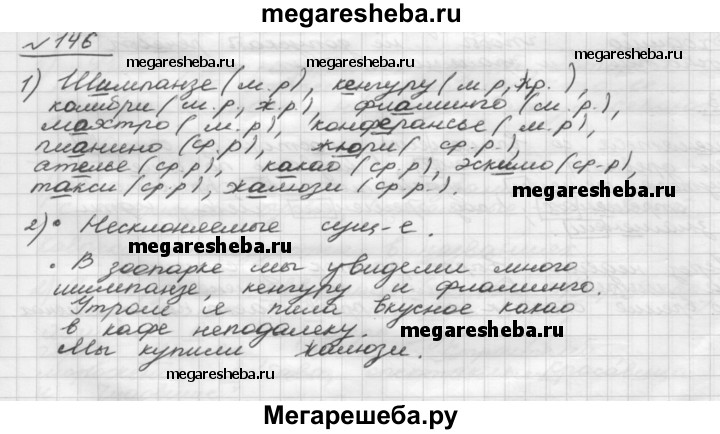 megaresheba.ru
№ 146
megaresheba.ru megaresheba.ru
1) Шимпанзе (м.р), кенгуру (м.р, ж.р.),
колибри (м.р, ж.р.), фламинго (м.р.),
маэстро (м.р), конферансье (м.р),
пианино (ср.р), жюри (ср.р.),
ателье (ср.р), какао (ср.р), эскимо (ср-р),
такси (ср.р), жалюзи (ср.р.).
megaresheba.ru
2) • Несклоняемые сущ-е.
megaresheba.ru
• В зоопарке мы увидели много
шимпанзе, кенгуру и фламинго.
Утром я пила вкусное какао
в кафе неподалеку.
megaresheba.ru
Мы купили жалюзи.
megaresheba.ru
Мегарешеба.ру